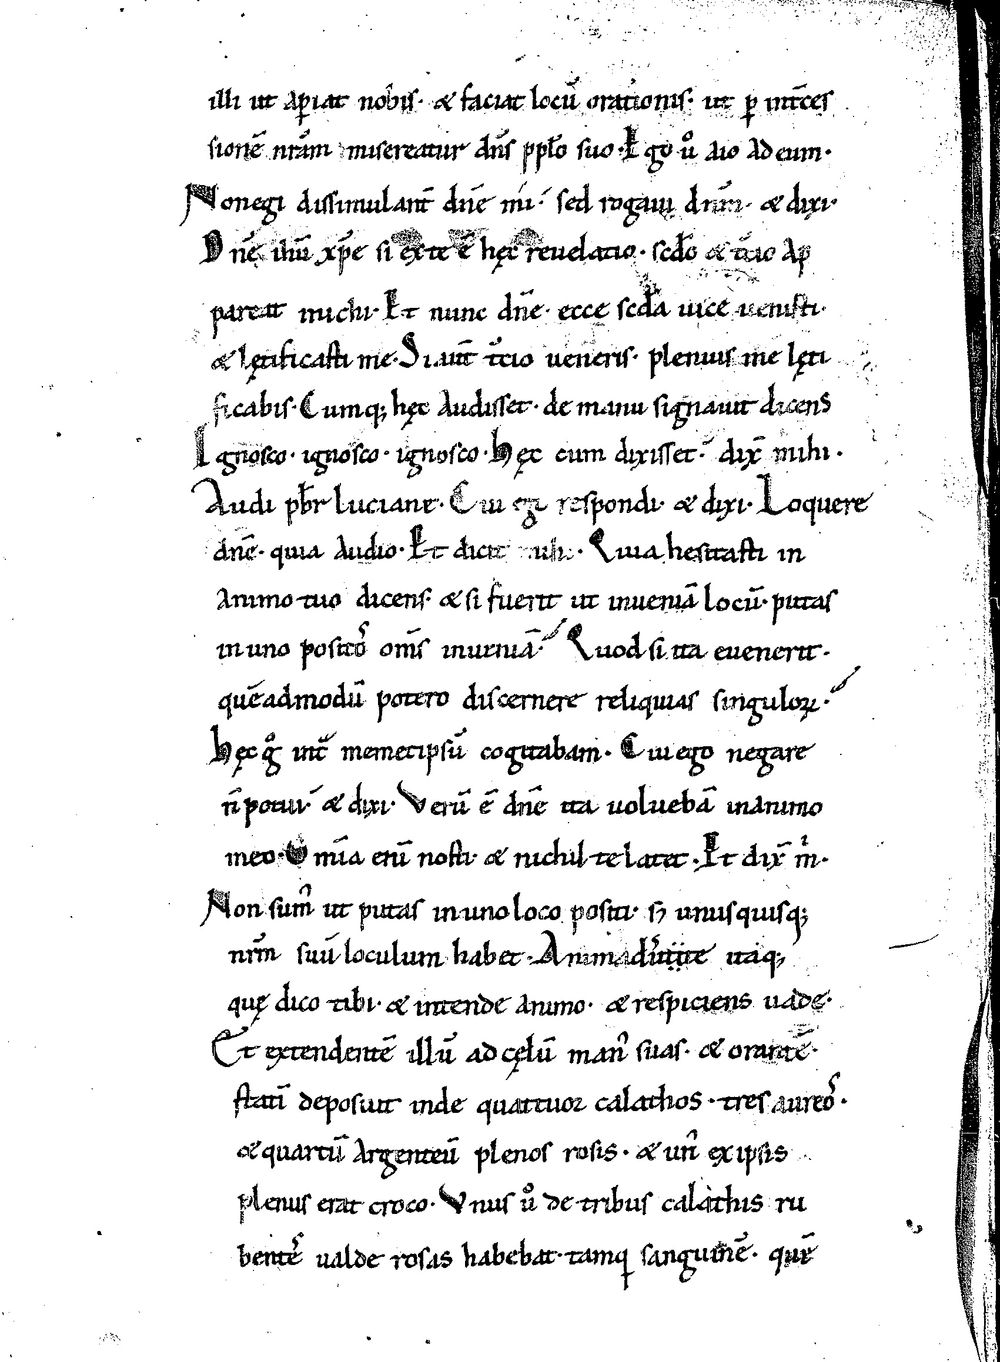 illi ut ap̲iat nob̄is· & faciat locū orationis· ut p̲ int̄ces
sionē nr̄am misereatur dn̄s pp̄lo suo· Ego ů aio ad eum·
Non egi dissimulant̄ dn̄e mi· sed rogaui dn̄m· & dixi·
Dn̄e ih̄u xp̄e si ex te ē hęc reuelatio· scd̄o & t̄cio ap
pareat michi· Et nunc dn̄e· ecce scd̄a uice uenisti·
& lętificasti me· Si aut̄ t̄cio ueneris· plenius me lęti
ficabis· Cumq; hęc audisset· de manu signauit dicens
Ignosco· ignosco· ignosco· Hęc cum dixisset· dix̄ mihi·
Audi pb̄r luciane· Cui ego respondi· & dixi· Loquere
dn̄e· quia audio· Et dicit mihi· Quia hesitasti in
animo tuo dicens· & si fuerit ut inueniā locū· putas
in uno positos om̄s inueniā· Quod si ita euenerit·
quēadmodū potero discernere reliquias singuloꝝ·
Hęc g̊ int̄ memetipsū cogitabam· Cui ego negare
n̄ potui· & dixi· Verū ē dn̄e ita uoluebā in animo
meo· Om̄ia eni̅ nosti· & nichil te latet· Et dix̄ m̊·
Non sum᷒ ut putas in uno loco positi· s; unusquisq;
nr̄m suū loculum habet· Animad̄uttite itaq;
quę dico tibi· & intende animo· & respiciens uade·
Et extendentē illū ad cęlū man᷒ suas· & orantē·
statī deposuit inde quattuor calathos· tres aureos·
& quartū argenteū plenos rosis· & un᷒ ex ipsis
plenus erat croco· Vnus ů de tribus calathis ru
bentes ualde rosas habebat· tamq̲ sanguinē· quę